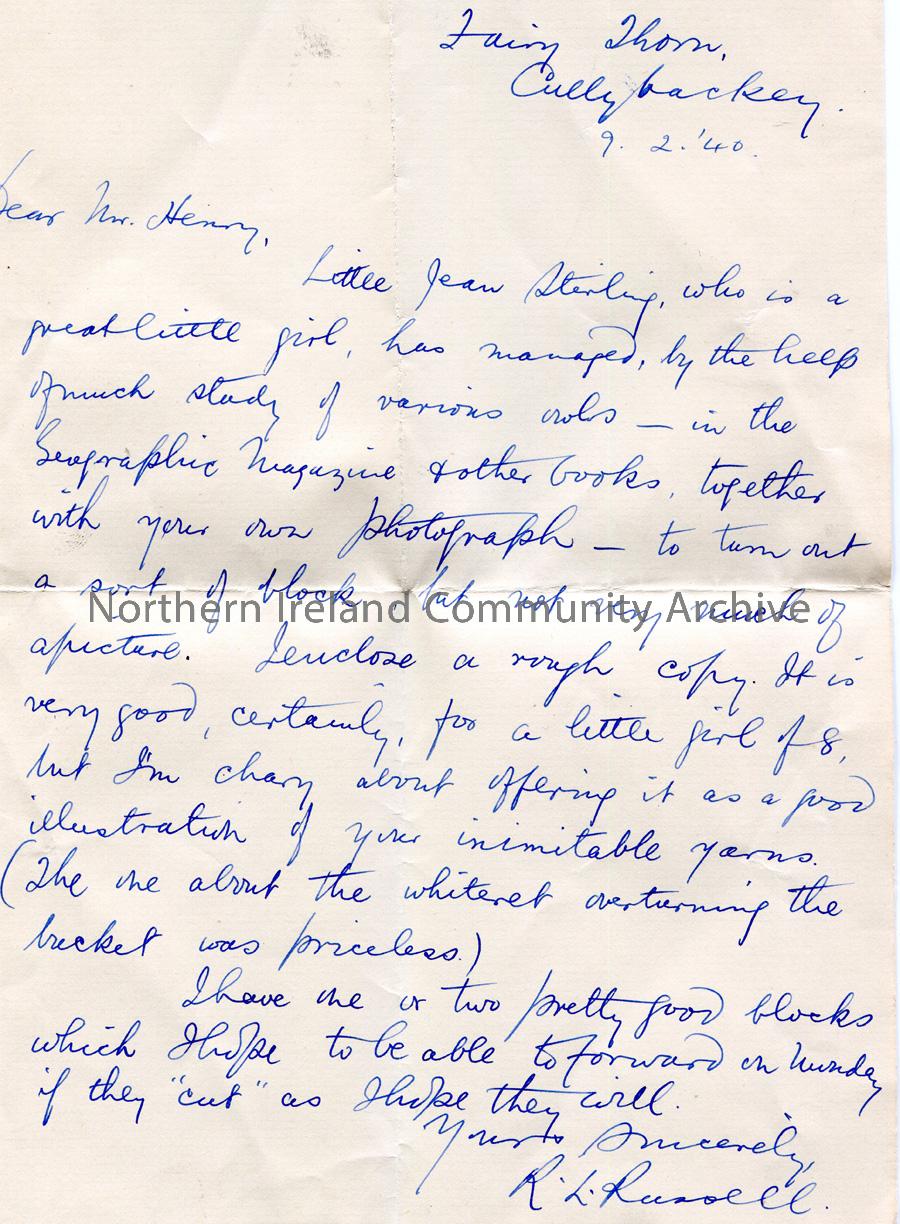 Fairy Thorn,
Cullybackey.
9. 2. '40.
Dear Mr. Henry,
Little Jean Sterling, who is a
great little girl, has managed, by the help
of much study of various owls — in the
Geographic Magazine & other books, together
with your own photograph — to turn out
a sort of block, but not very much of
Northern Ireland Community Archive
a picture. I enclose a rough copy. It is
very good, certainly, for a little girl of 8,
but I'm chary about offering it as a good
illustration of your inimitable yarns.
(The one about the whiteret overturning the
bucket was priceless.)
I have one or two pretty good blocks
which I hope to be able to forward on Monday
if they "cut" as I hope they will.
Yours Sincerely,
R. L. Russell.